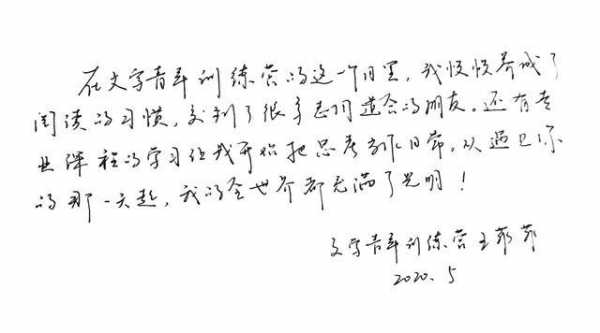 在文字青年训练营的这一个月里，我慢慢养成了
阅读的习惯，交到了很多志同道合的朋友，还有专
业课程的学习让我开始把思考当作日常，从遇见你
的那一天起，我的全世界都充满了光明！
文字青年训练营 王
2020.5